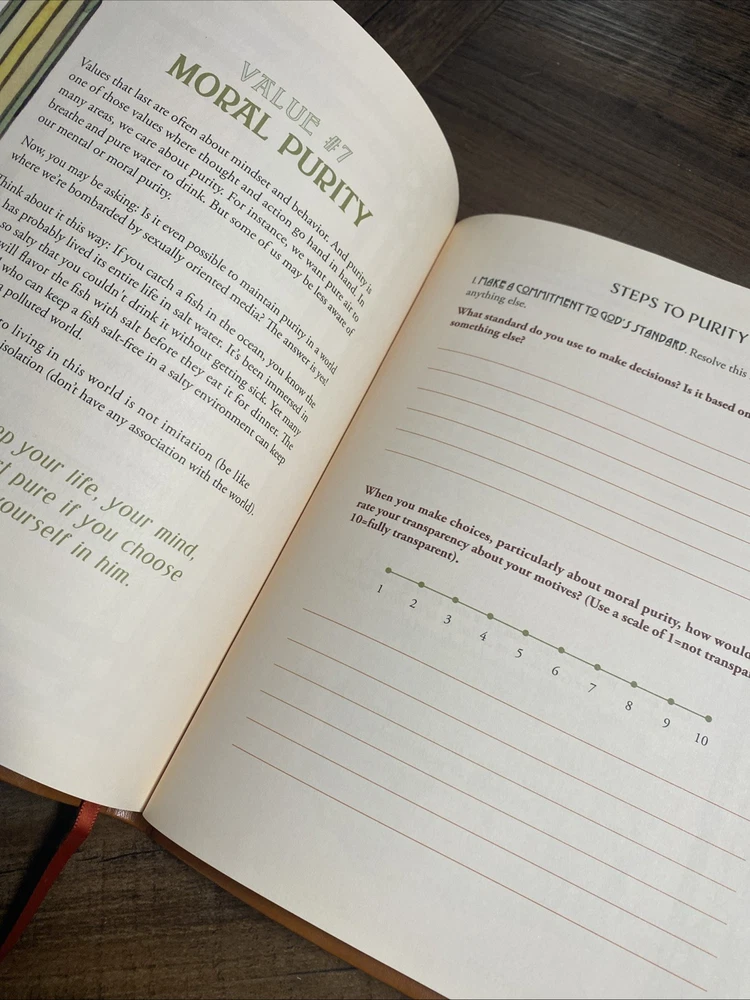 VALUE #7
MORAL PURITY
Values that last are often about mindset and behavior. And purity is
one of those values where thought and action go hand in hand. In
many areas, we care about purity. For instance, we want pure air to
breathe and pure water to drink. But some of us may be less aware of
our mental or moral purity.
Now, you may be asking: Is it even possible to maintain purity in a world
where we're bombarded by sexually oriented media? The answer is yes!
Think about it this way: If you catch a fish in the ocean, you know the
has probably lived its entire life in salt water. It's been immersed in
so salty that you couldn't drink it without getting sick. Yet many
will flavor the fish with salt before they eat it for dinner. The
who can keep a fish salt-free in a salty environment can keep
a polluted world.
to living in this world is not imitation (be like
isolation (don't have any association with the world).
your life, your mind,
pure if you choose
yourself in him.
STEPS TO PURITY
1. MAKE A COMMITMENT TO GOD'S STANDARD. Resolve this
anything else.
What standard do you use to make decisions? Is it based on
something else?
When you make choices, particularly about moral purity, how would
rate your transparency about your motives? (Use a scale of 1=not
10=fully transparent).
1 2 3 4 5 6 7 8 9 10